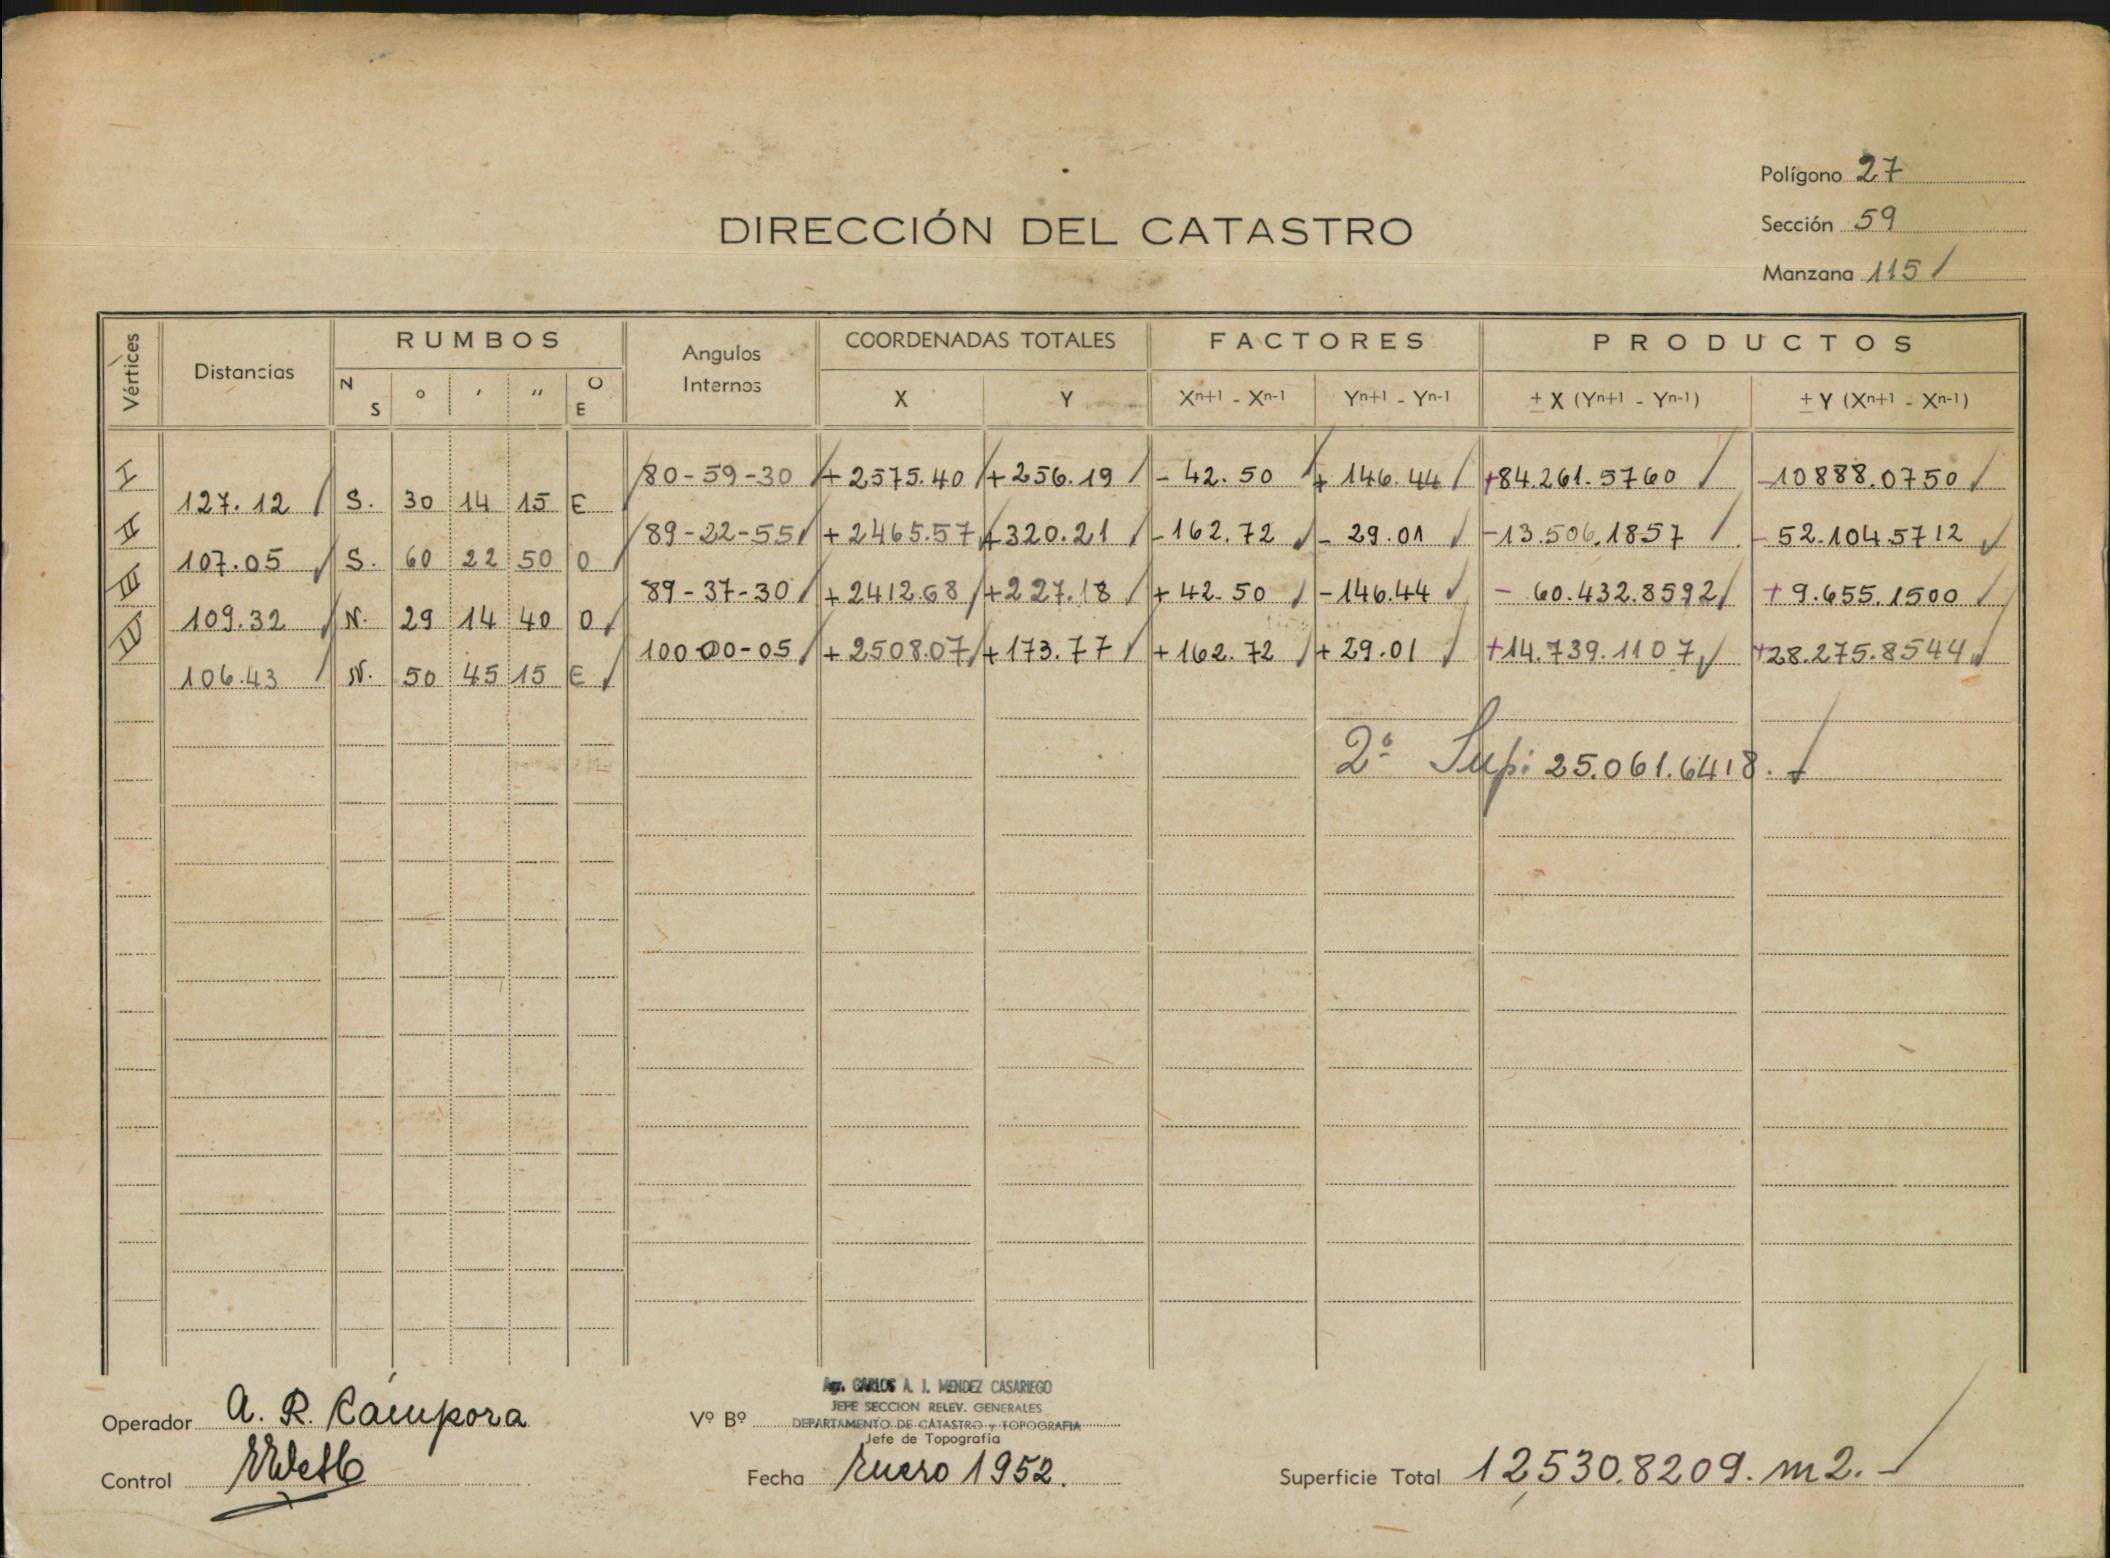 Polígono 27
DIRECCIÓN DEL CATASTRO
Sección 59
Manzana 115
Vértices Distancias RUMBOS Angulos Internos COORDENADAS TOTALES FACTORES PRODUCTOS
N S ° ′ ″ O E X Y Xn+1 - Xn-1 Yn+1 - Yn-1 ± X (Yn+1 - Yn-1) ± Y (Xn+1 - Xn-1)
I 80-59-30 +2575.40 +256.19 - 42.50 + 146.44 +84.261.5760 -10888.0750
127.12 S. 30 14 15 E
II 89-22-55 +2465.57 +320.21 -162.72 - 29.01 -13.506.1857 - 52.104.5712
107.05 S. 60 22 50 O
III 89-37-30 +2412.68 +227.18 +42.50 -146.44 - 60.432.8592 + 9.655.1500
109.32 N. 29 14 40 O
IV 100-00-05 +2508.07 +173.77 +162.72 +29.01 +14.739.1107 +28.275.8544
106.43 N. 50 45 15 E
2ª Sup: 25.061.6418.
Agr. CARLOS A. J. MENDEZ CASARIEGO
JEFE SECCION RELEV. GENERALES
Operador A. R. Cámpora Vº Bº DEPARTAMENTO DE CATASTRO y TOPOGRAFIA
Jefe de Topografía
Control Fecha Enero 1952. Superficie Total 12,530.8209. m2.-